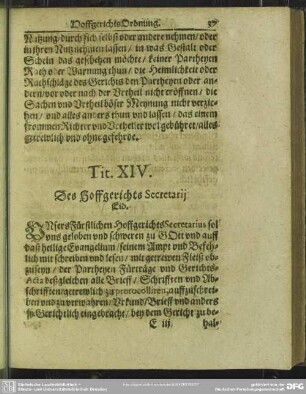 Hoffgerichts Ordnung. 37
Nutzung/durch sich selbst oder andere nehmen/oder
in ihren Nutz nehmen lassen/in was Gestalt oder
Schein das geschehen möchte/keiner Partheyen
Rath oder Warnung thun/die Heimlikeit oder
Rathschläge des Gerichts den Partheyen oder an-
dern/vor oder nach der Vrtheil nicht eröffnen/die
Sachen vnd Vrtheil böser Meynung nicht verzie-
hen/vnd alles anders thun vnd lassen/das einem
frommen Richter vnd Vrtheiler wol gebühret/alles
getrewlich vnd ohne gefehrde.
Tit. XIV.
Des Hoffgerichts Secretarij
Eid.
VNsers Fürstlichen Hoffgerichts Secretarius sol
vns geloben vnd schweren zu GOtt vnd auff
das heilige Evangelium/seinem Ampt vnd Befeh-
lich mit schreiben vnd lesen/mit getrewen Fleiß ob-
zuseyn/der Partheyen Fürträge vnd Gerichts-
Acta desgleichen alle Brieff/Schrifften vnd Ab-
schrifften/getrewlich zu protocolliren/auffzuschrei-
ben vnd zu verwahren/Vrkund/Brieff vnd anders
so Gerichtlich eingebracht/bey dem Gericht zu be-
E iij hal-